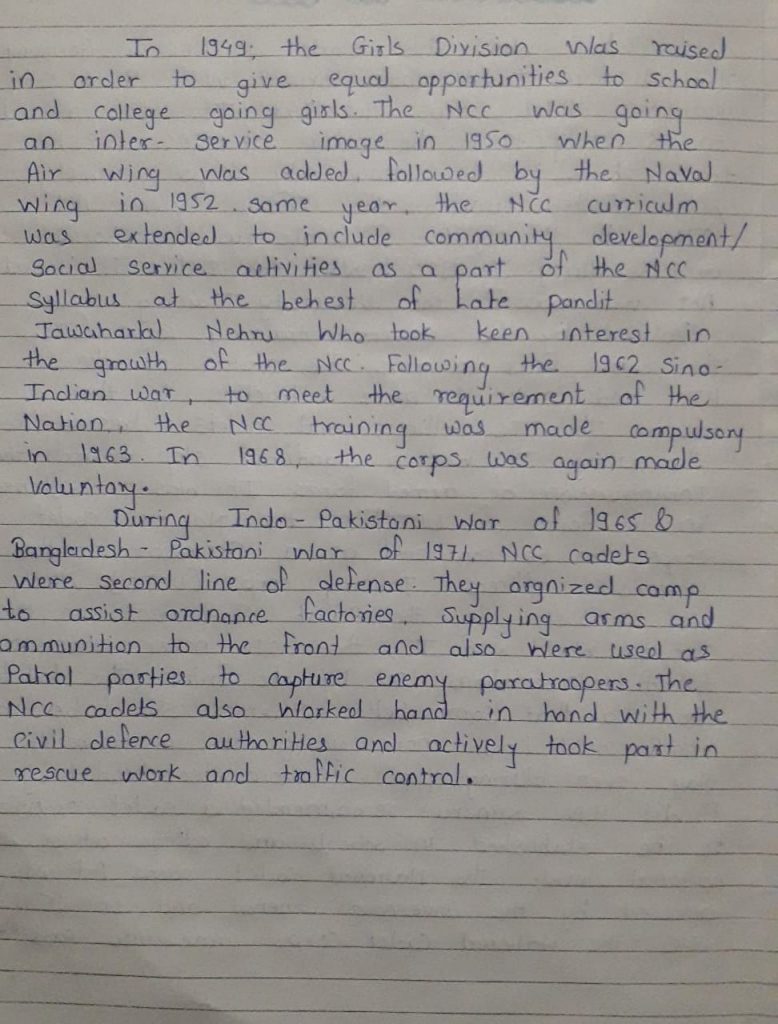 In 1949, the Girls Division was raised
in order to give equal opportunities to school
and college going girls. The NCC was going
an inter- service image in 1950 when the
Air wing was added, followed by the Naval
wing in 1952. same year, the NCC curriculm
was extended to include community development/
Social service activities as a part of the NCC
Syllabus at the behest of Late pandit
Jawaharlal Nehru Who took keen interest in
the growth of the NCC. Following the 1962 Sino-
Indian war, to meet the requirement of the
Nation, the NCC training was made compulsory
in 1963. In 1968, the corps was again made
Voluntary.
During Indo- Pakistani war of 1965 &
Bangladesh - Pakistani war of 1971, NCC cadets
Were second line of defense. They orgnized camp
to assist ordnance factories, Supplying arms and
ammunition to the front and also were used as
Patrol parties to capture enemy paratroopers. The
NCC cadets also worked hand in hand with the
civil defence authorities and actively took part in
rescue work and traffic control.